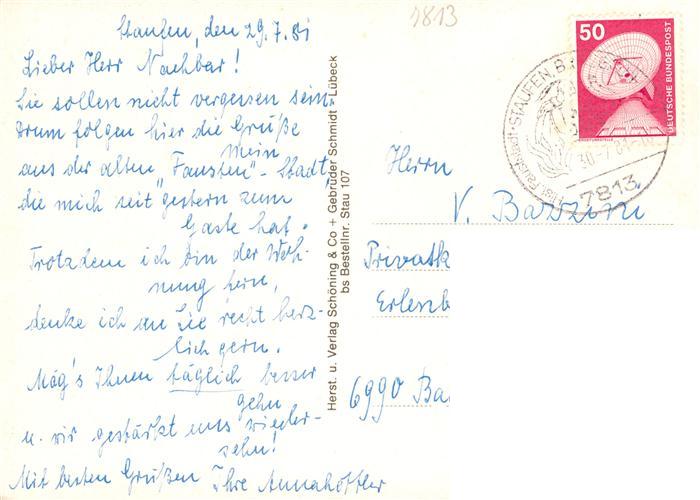 Staufen, den 29.7.81
Lieber Herr Nachbar!
Sie sollen nicht vergessen sein.
Drum folgen hier die Grüße
mein
aus der alten "Fausten"-Stadt
die mich seit gestern zum
Gaste hat.
Trotzdem ich bin der Woh-
nung fern,
denke ich an Sie recht herz-
lich gern.
Mög's Ihnen täglich besser
gehn
u. wir gestärkt uns wieder-
sehn!
Mit besten Grüßen Ihre
Herst. u. Verlag Schöning & Co + Gebrüder Schmidt - Lübeck
bs Bestellnr. Stau 107
1813
50
DEUTSCHE BUNDESPOST
STAUFEN, B
30.-7.81
7813
Herrn
V. Bazzini
Privatk
Erlenb
6990 Ba